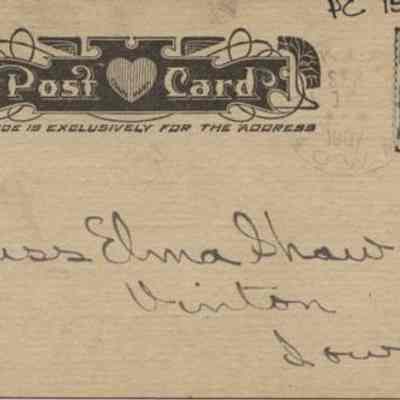 PC 15
Post Card
DE IS EXCLUSIVELY FOR THE ADDRESS
iss Elma Shaw
Vinton
Iow